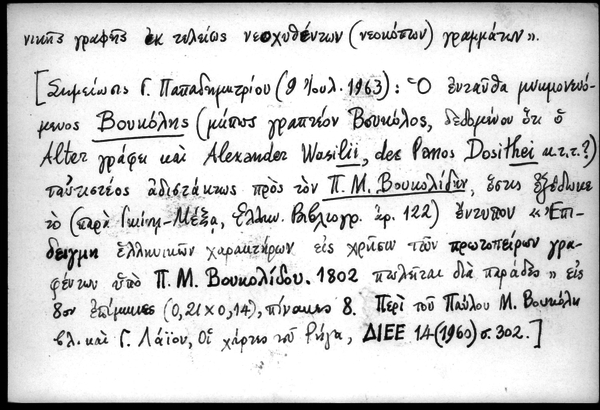 νικῆς γραφῆς ἐκ τελείως νεοχυθέντων (νεοκόπων) γραμμάτων».
[Σημείωσις Γ. Παπαδημητρίου (9 Ἰουλ. 1963): Ὁ ἐνταῦθα μνημονευό-
μενος Βουκόλης (μήπως γραπτέον Βουκόλος, δεδομένου ὅτι ὁ
Alter γράφει καὶ Alexander Wasilii, des Panos Dosithei κ.τ.τ.?)
ταὐτιστέος ἀδιστάκτως πρὸς τὸν Π. Μ. Βουκολίδην, ὅστις ἐξέδωκε
τὸ (παρὰ Γκίνη-Μέξα, Ἑλλην. Βιβλιογρ. ἀρ. 122) ἔντυπον «Ἐπί-
δειγμα ἑλληνικῶν χαρακτήρων εἰς χρῆσιν τῶν πρωτοπείρων γρα-
φέντων ὑπὸ Π. Μ. Βουκολίδου. 1802 πωλεῖται διὰ παράδες» εἰς
8ον ἐπίμηκες (0,21 × 0,14), πίνακες 8. Περὶ τοῦ Παύλου Μ. Βουκόλη
βλ. καὶ Γ. Λάϊου, Οἱ χάρτες τοῦ Ρήγα, ΔΙΕΕ 14 (1960) σ. 302.]